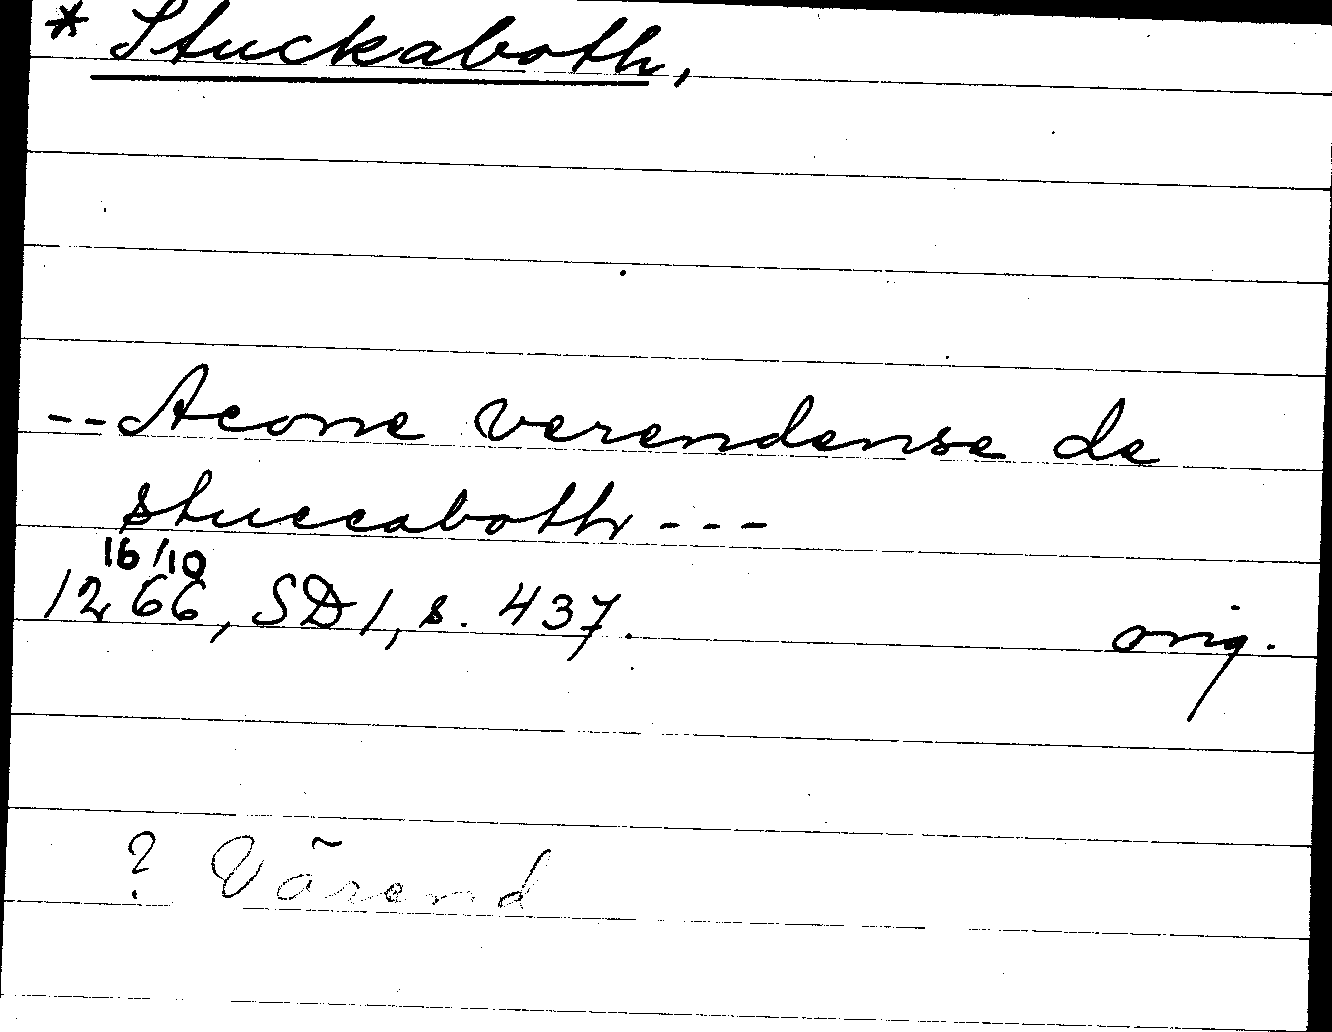 * Stuckaboth,
-- Acone verendense de
stuccaboth ---
16/10
1266, SD 1, s. 437.
orig.
? Värend